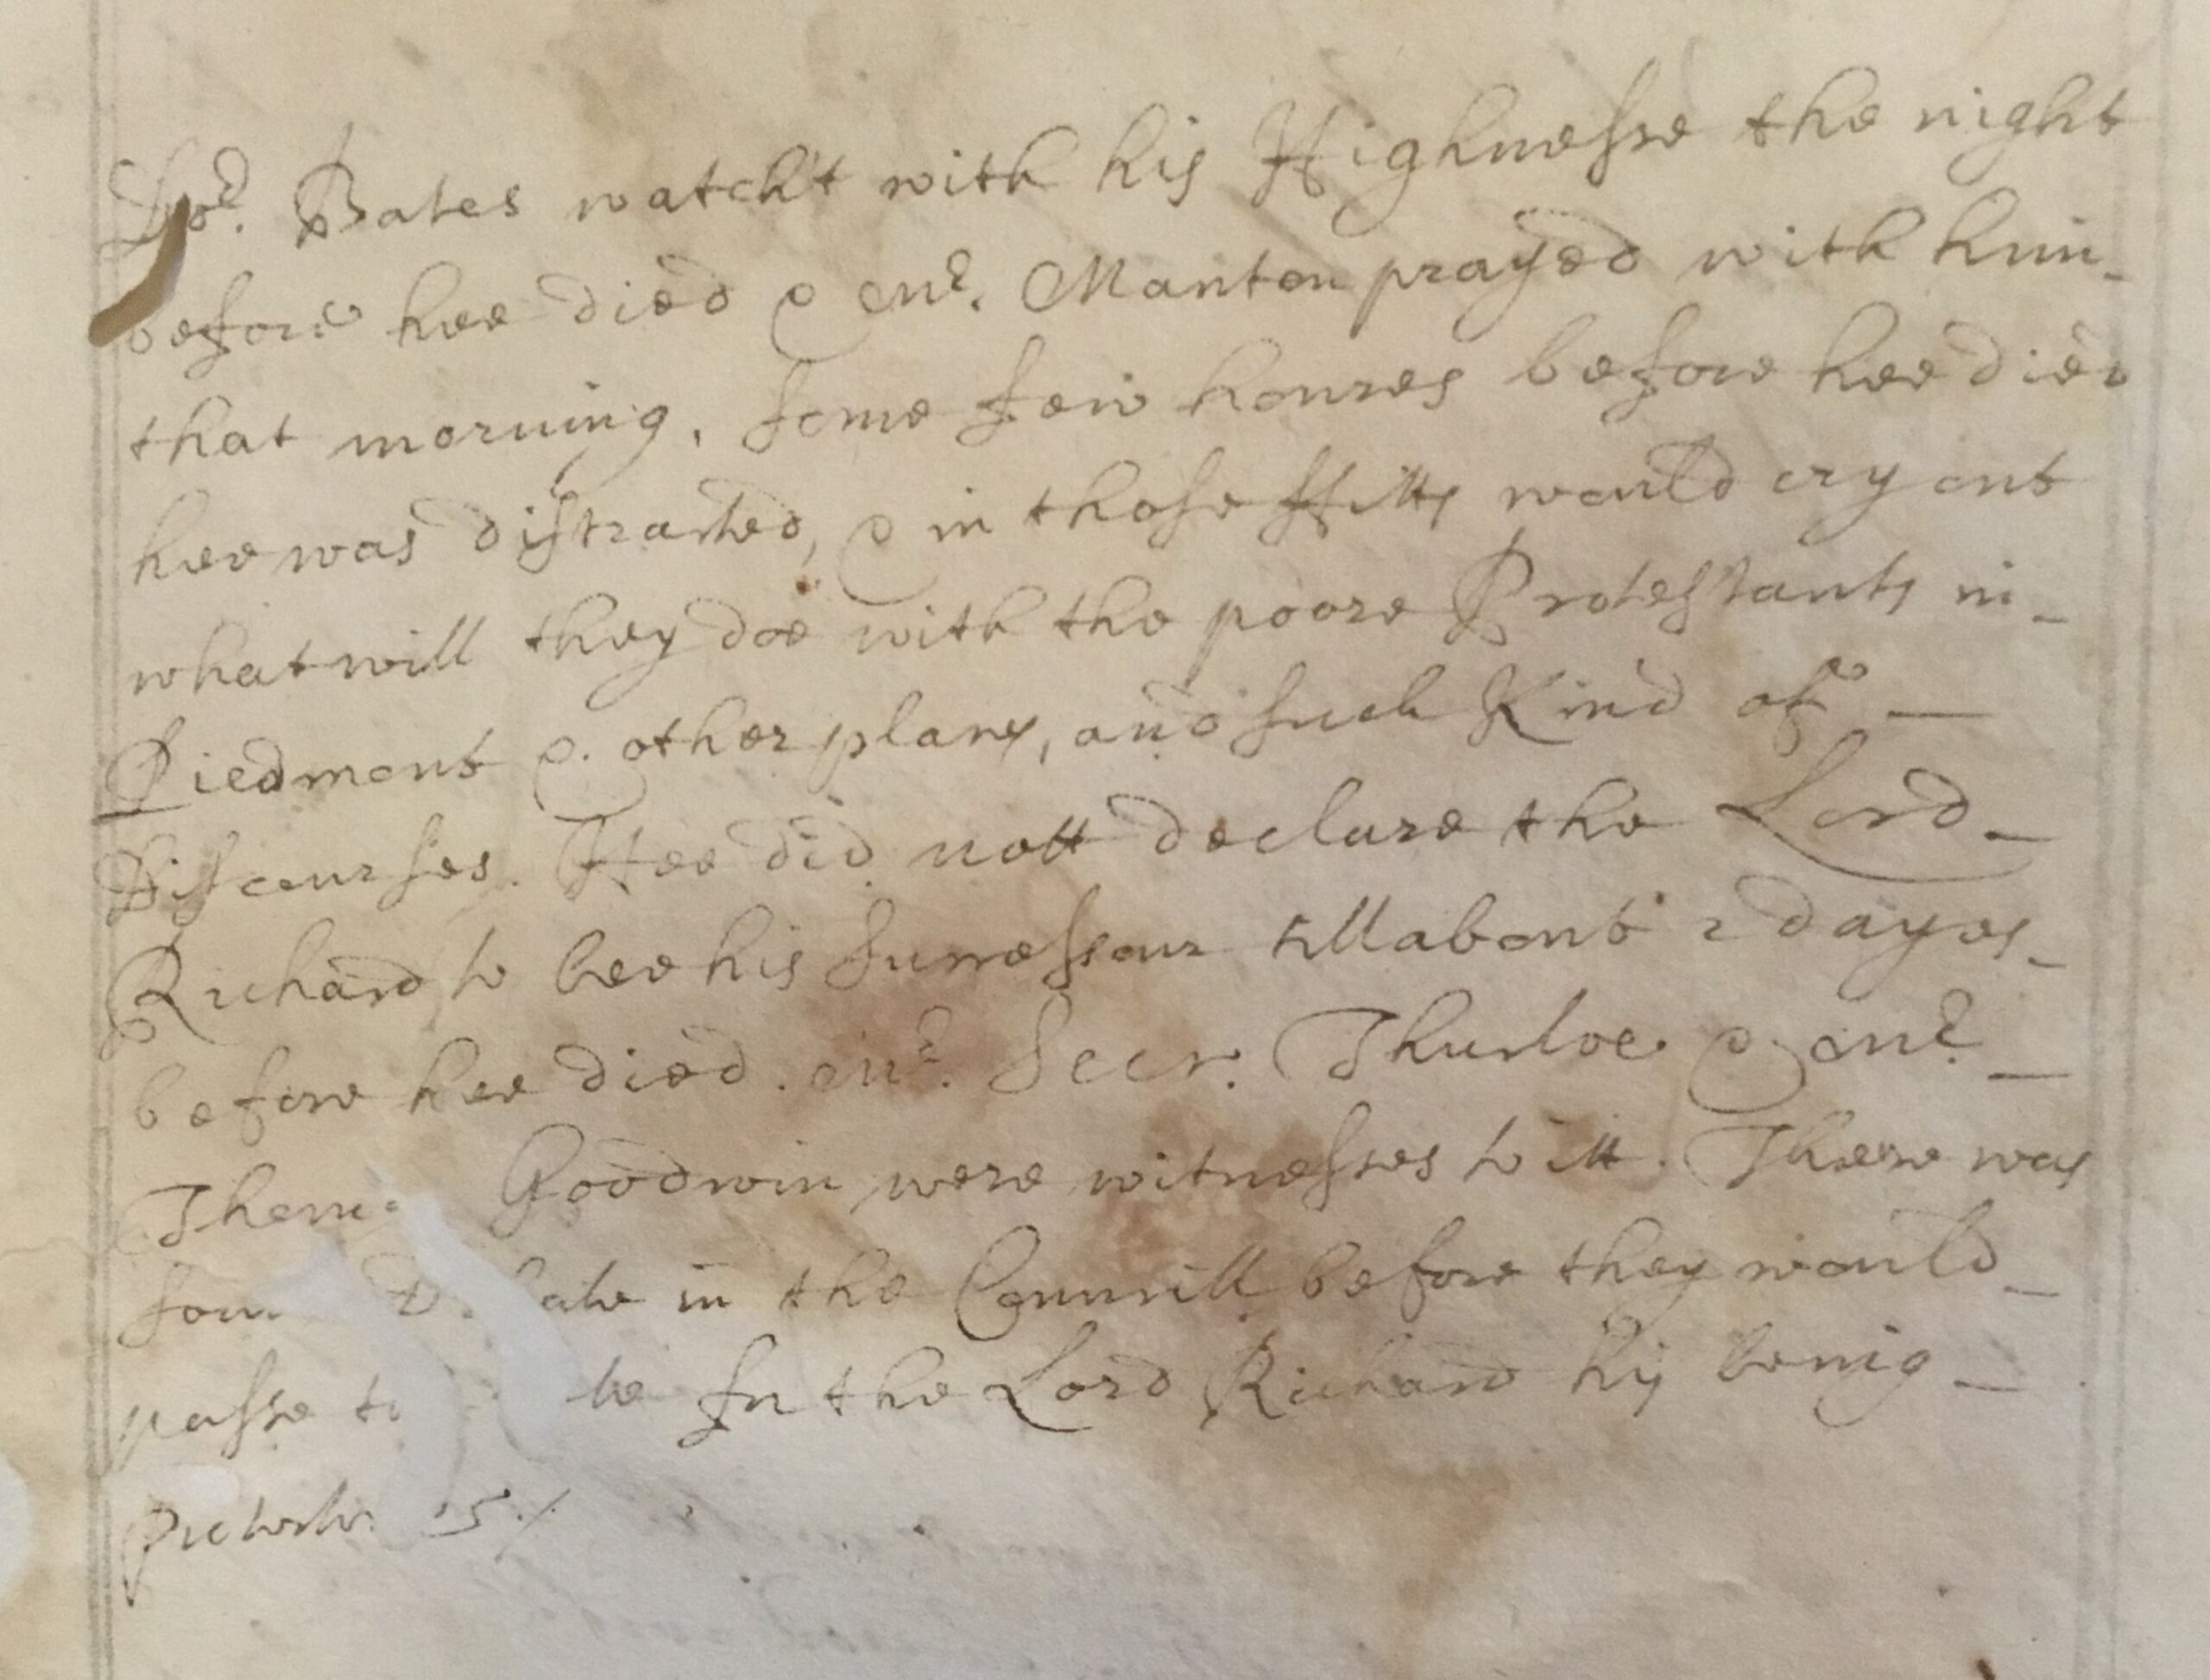 Dor. Bates watch't with his Highnesse the night
before hee died & Mr. Manton prayed with him
that morning, some few houres before hee died
hee was distracted, & in those ffitts would cry out
what will they doe with the poore Protestants in
Piedmont & other places, and such Kind of
Discourses. Hee did nott declare the Lord
Richard to bee his Successour till about 2 dayes
before hee died. Mr. Secr. Thurloe & Mr.
Goodwin were witnesses to itt. There was
in the Councill before they would
passe in the Lord Richard his being